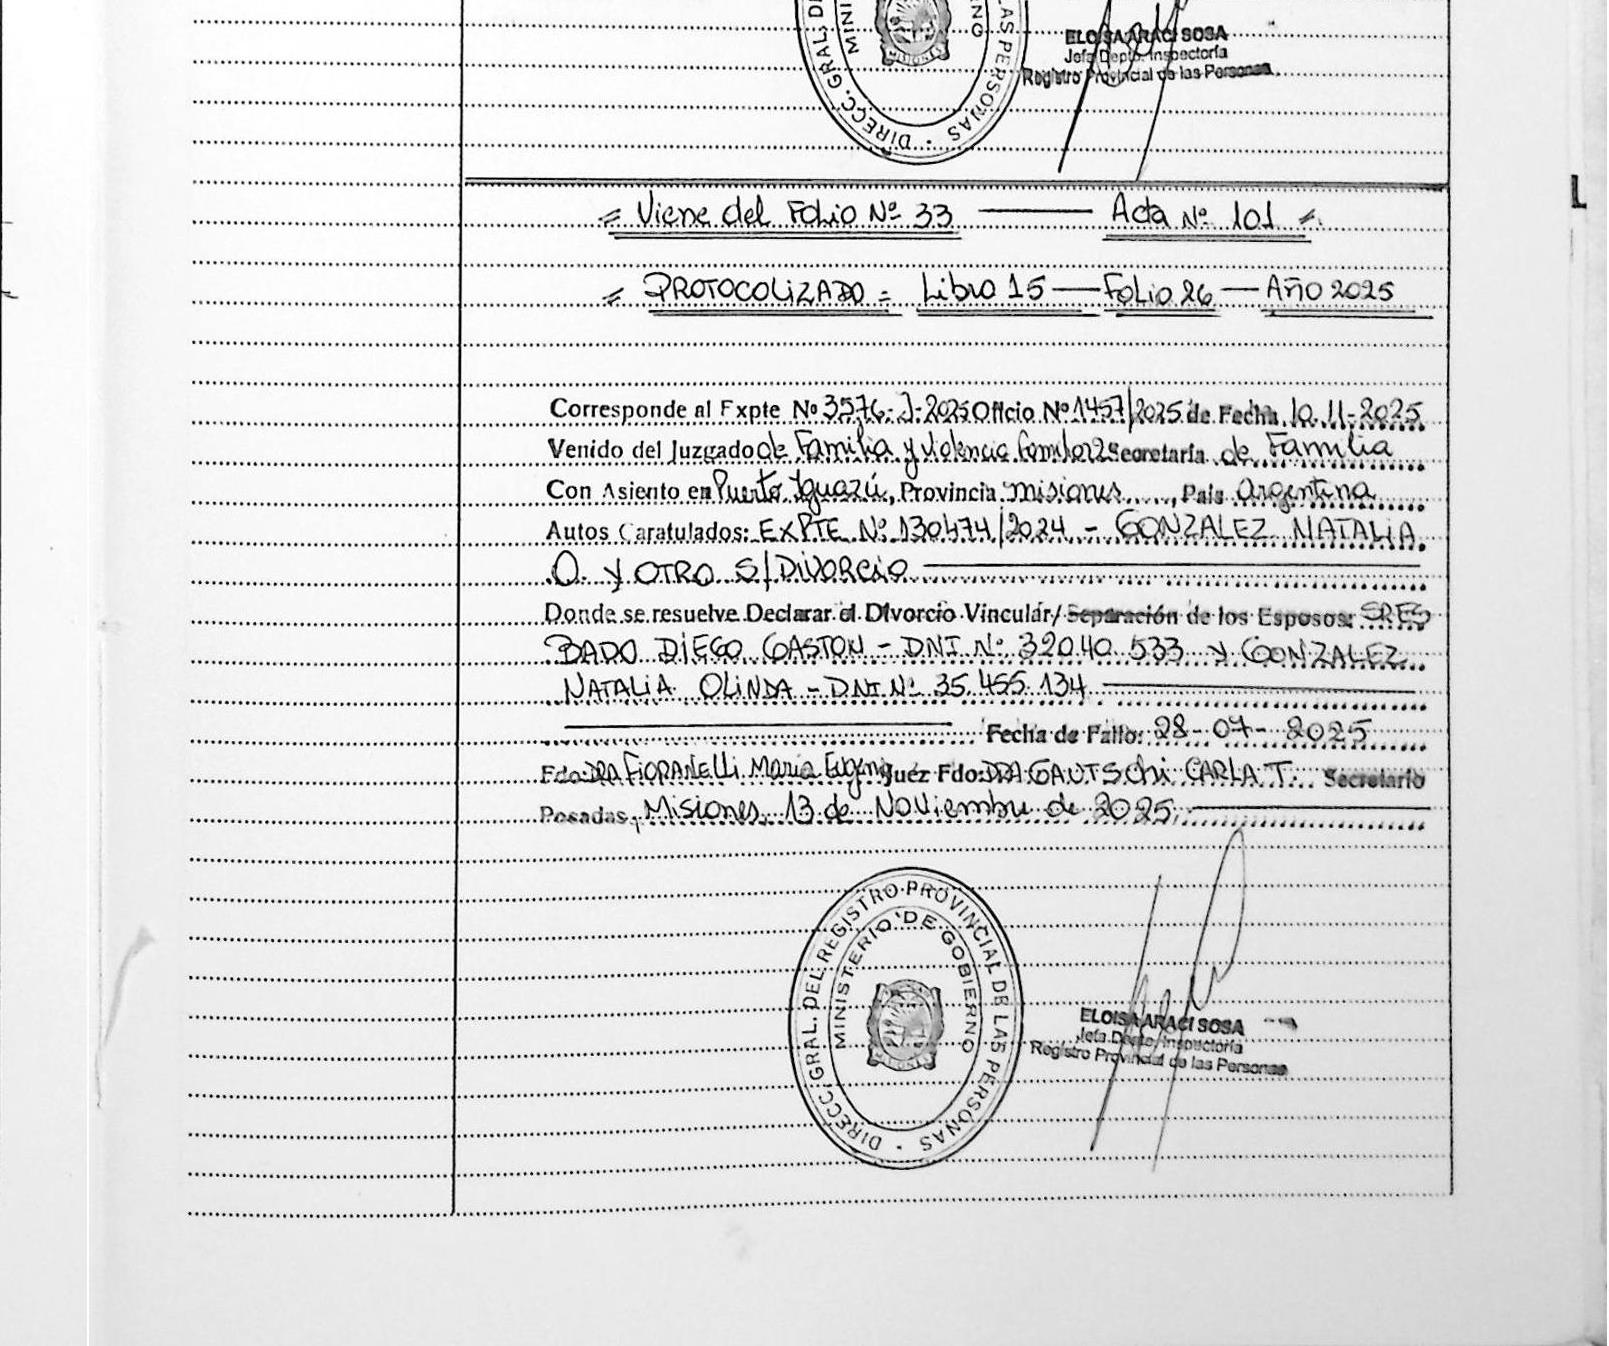 DIRECC. GRAL. DE LAS PERSONAS
ELOISA ARACI SOSA
Jefa Depto. Inspectoría
Registro Provincial de las Personas
Viene del Folio Nº 33 — Acta Nº 101
PROTOCOLIZADO = Libro 15 — Folio 26 — Año 2025
Corresponde al Expte Nº 3576-J-2025 Oficio Nº 1457/2025 de Fecha 10-11-2025
Venido del Juzgado de Familia y Violencia Familiar Secretaría de Familia
Con Asiento en Puerto Iguazú, Provincia misiones, País Argentina
Autos Caratulados: EXPTE Nº 130474/2024 - GONZALEZ NATALIA
O. y OTRO S/DIVORCIO
Donde se resuelve Declarar el Divorcio Vincular/ Separación de los Esposos: SRES
BADO DIEGO GASTON - DNI Nº 32040.533 y GONZALEZ
NATALIA OLINDA - DNI Nº 35.455.134
Fecha de Fallo: 28-07-2025
Fdo: DRA FIORANELLI Maria Eugenia Juez Fdo: DRA GAUTSCHI CARLA T. Secretario
Posadas, Misiones, 13 de Noviembre de 2025.
DIRECC. GRAL. DEL REGISTRO PROVINCIAL DE LAS PERSONAS
MINISTERIO DE GOBIERNO
MISIONES
ELOISA ARACI SOSA
Jefa Depto. Inspectoría
Registro Provincial de las Personas
L